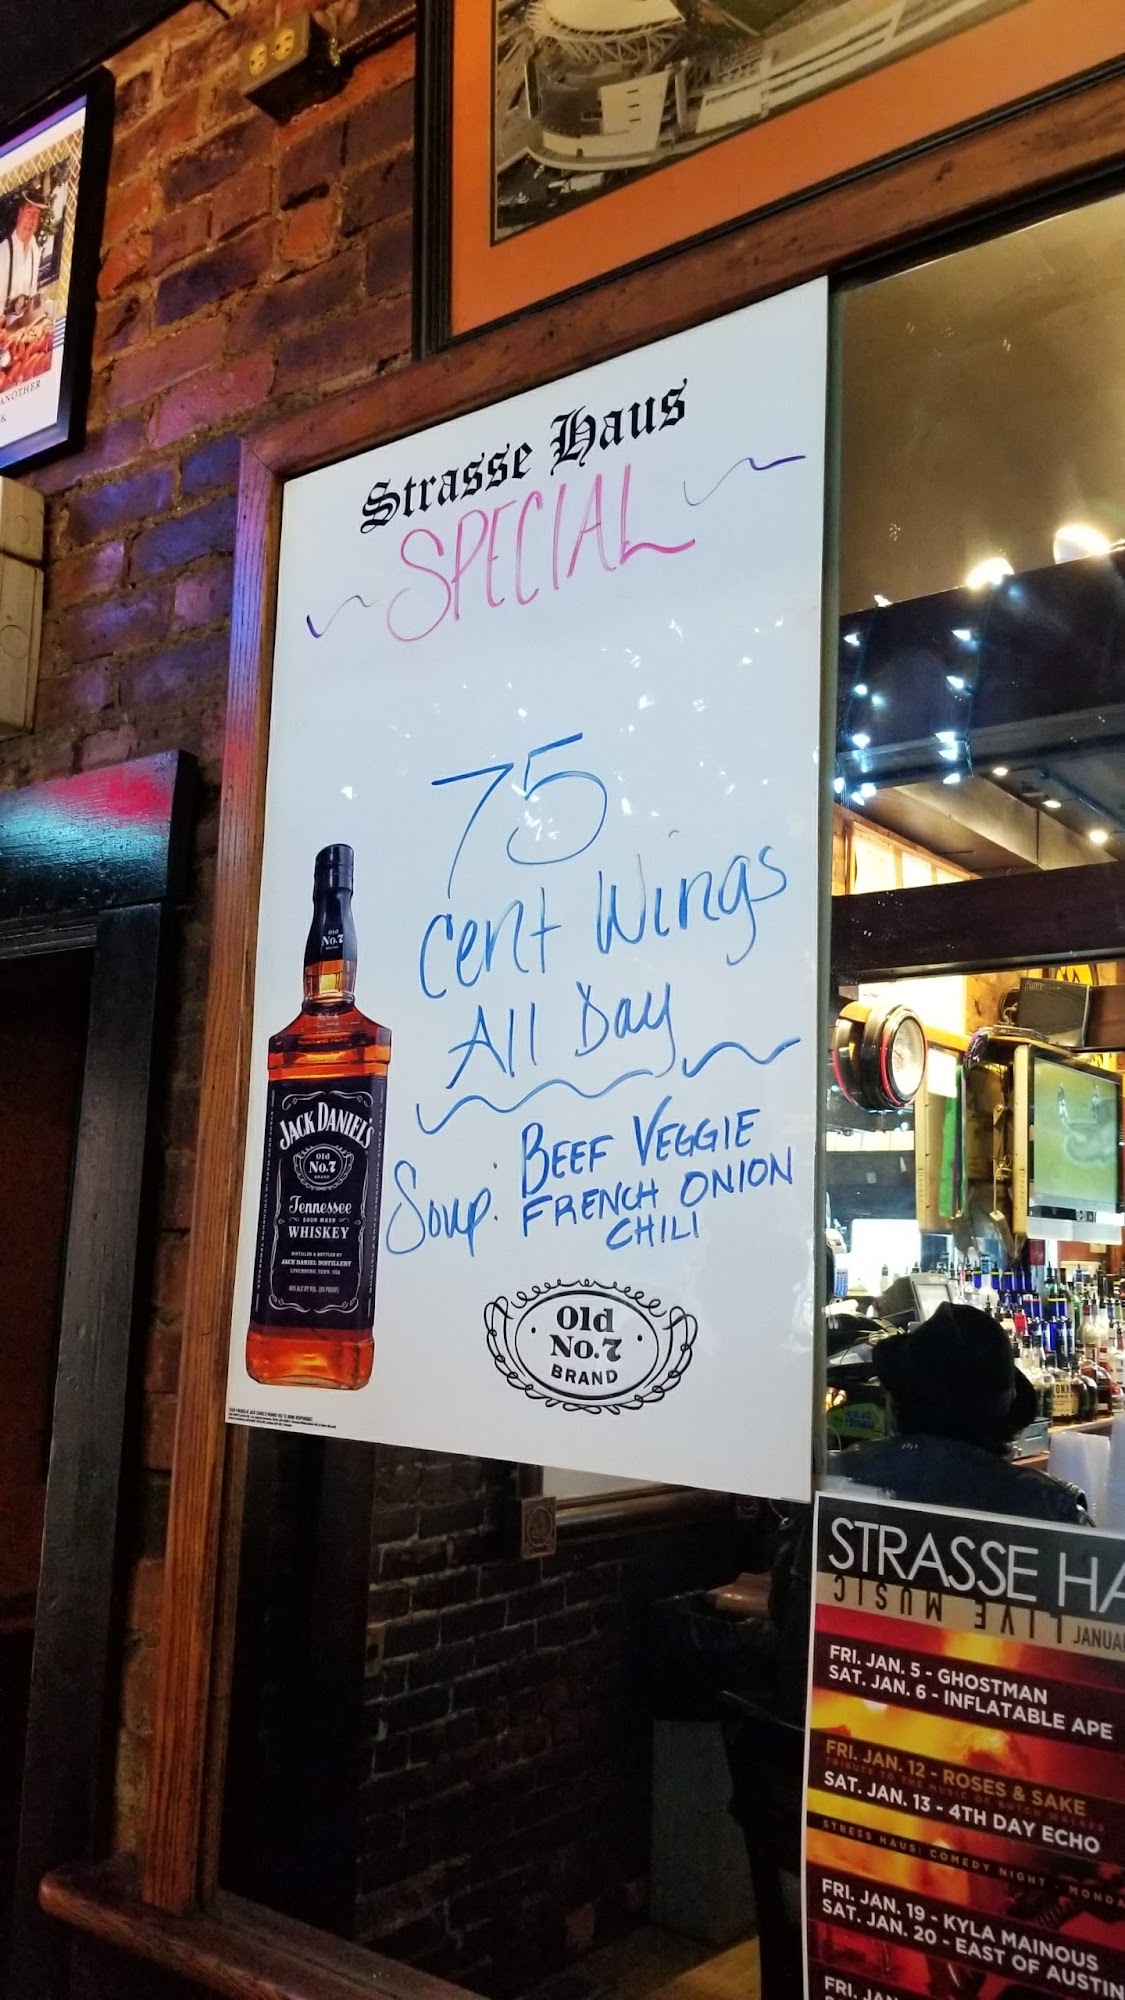 ANOTHER
Strasse Haus
SPECIAL
75
cent Wings
All Day
Soup: BEEF VEGGIE
FRENCH ONION
CHILI
Old
No.7
BRAND
Old
No.7
JACK DANIEL'S
Old
No.7
BRAND
Tennessee
SOUR MASH
WHISKEY
DISTILLED & BOTTLED BY
JACK DANIEL DISTILLERY
LYNCHBURG, TENN. USA
STRASSE HA
LIVE MUSIC
JANUA
FRI. JAN. 5 - GHOSTMAN
SAT. JAN. 6 - INFLATABLE APE
FRI. JAN. 12 - ROSES & SAKE
TRIBUTE TO THE MUSIC OF BUTCH WALKER
SAT. JAN. 13 - 4TH DAY ECHO
STRESS HAUS: COMEDY NIGHT - MONDA
FRI. JAN. 19 - KYLA MAINOUS
SAT. JAN. 20 - EAST OF AUSTIN
FRI. JAN